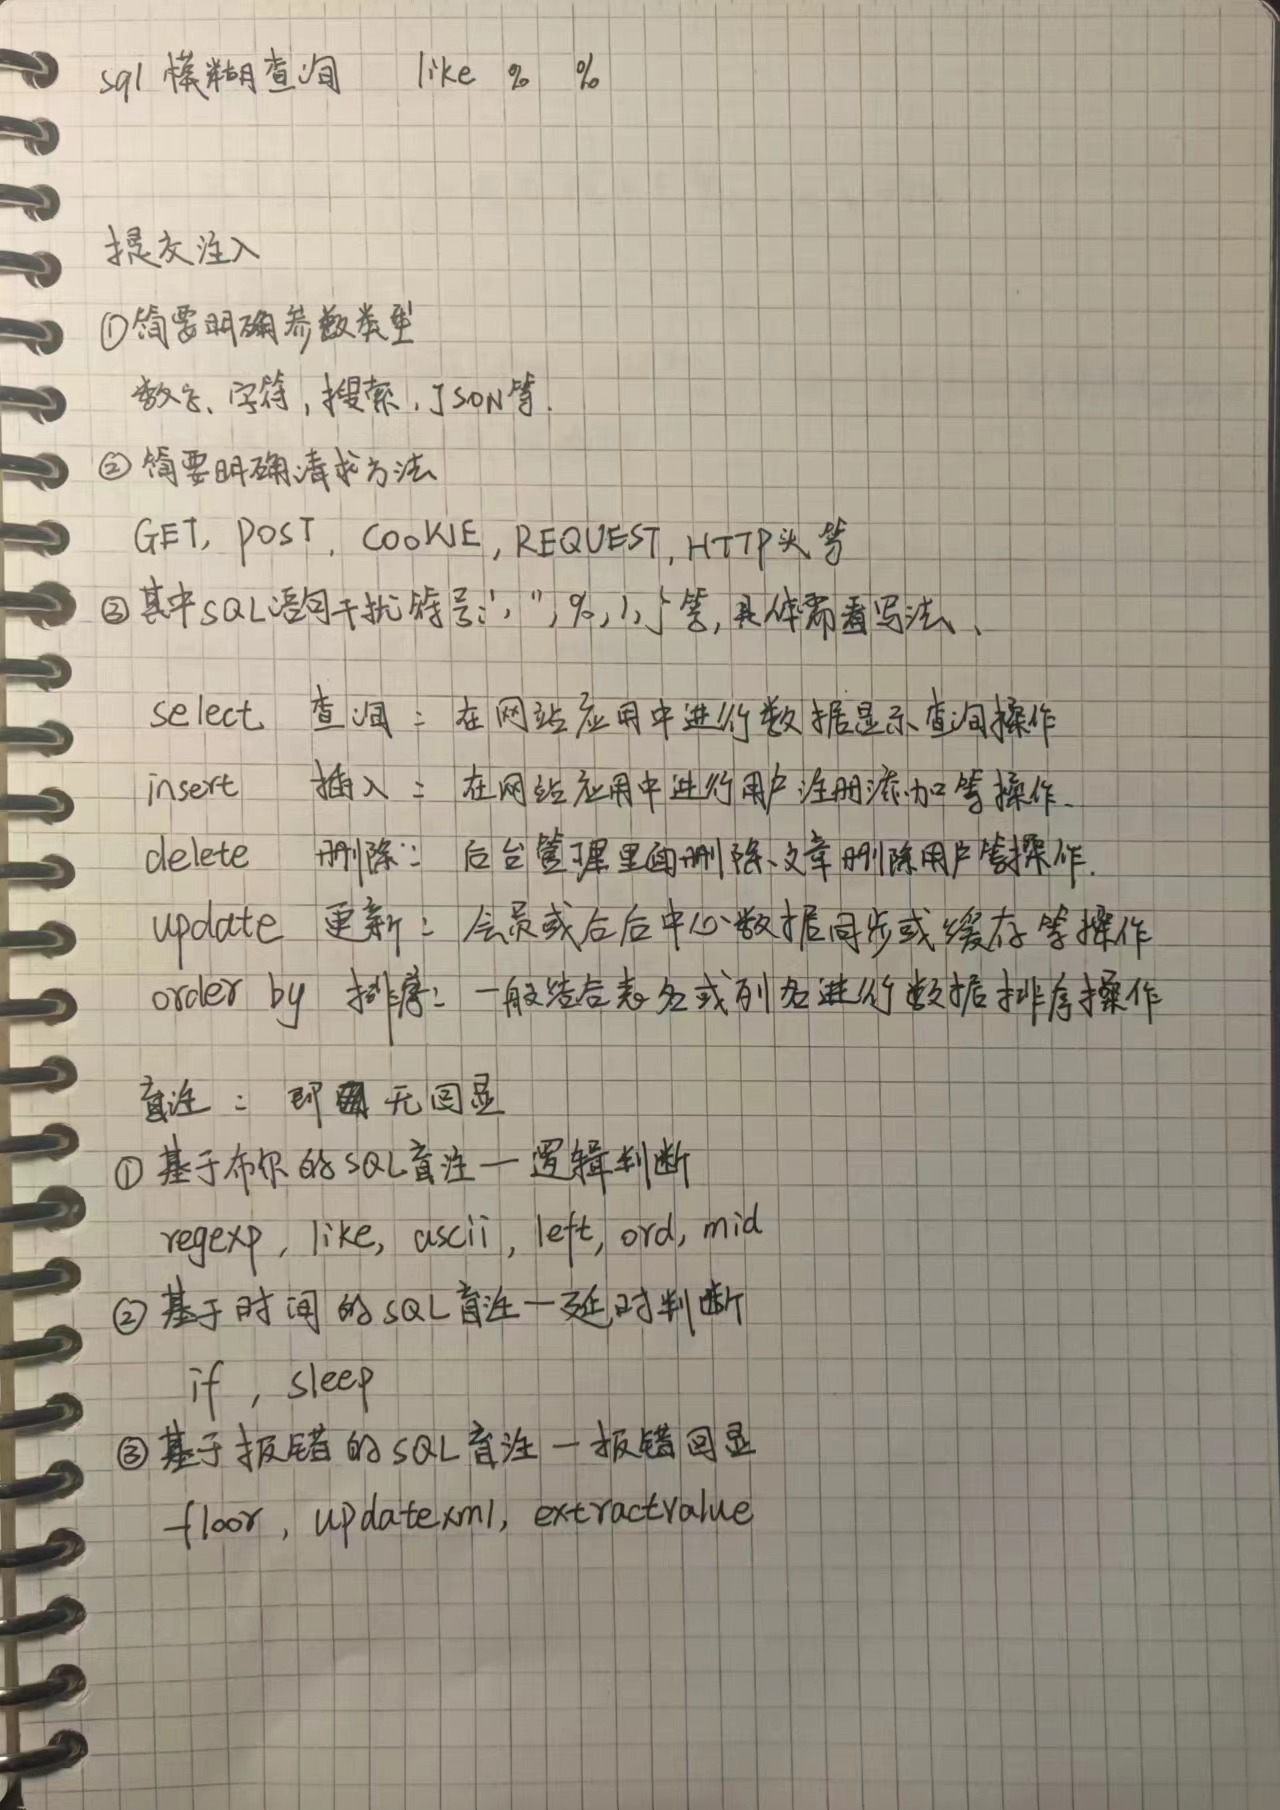 sql 模糊查询 like % %
提交注入
①简要明确参数类型
数字、字符，搜索，JSON等.
②简要明确请求方法
GET, POST, COOKIE, REQUEST, HTTP头等
③其中SQL语句干扰符号：', ", %, ), }等，具体需看写法、
select 查询：在网站应用中进行数据显示查询操作
insert 插入：在网站应用中进行用户注册添加等操作.
delete 删除：后台管理里面删除文章删除用户等操作.
update 更新：会员或后台中心数据同步或缓存等操作
order by 排序：一般结合表名或列名进行数据排序操作
盲注：即无回显
①基于布尔的SQL盲注—逻辑判断
regexp, like, ascii, left, ord, mid
②基于时间的SQL盲注—延时判断
if, sleep
③基于报错的SQL盲注—报错回显
floor, updatexml, extractvalue